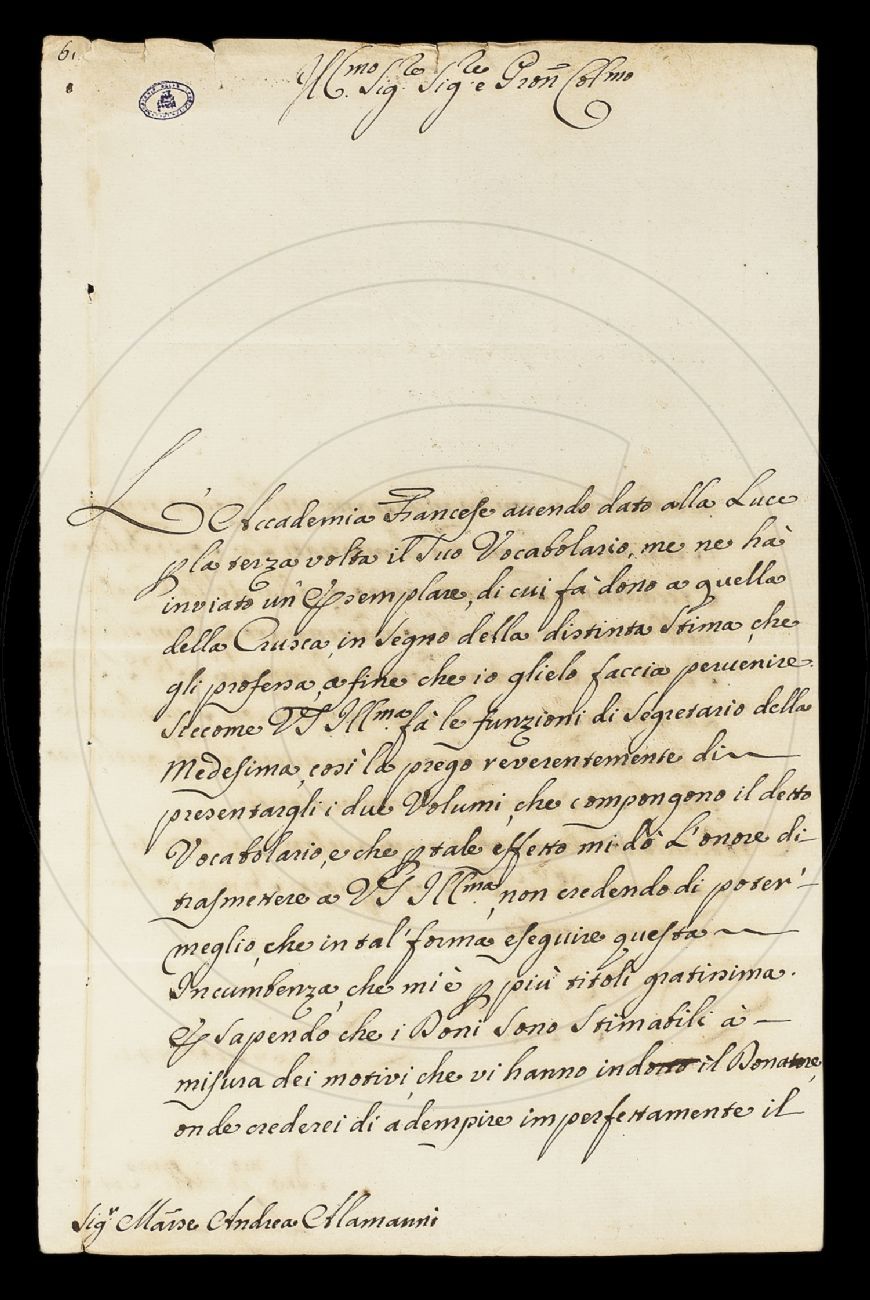 61
Ill.mo Sig.re Sig.re e Pron Col.mo
L'Accademia Francese auendo dato alla Luce
p la terza volta il Suo Vocabolario, me ne hà
inviato un' Esemplare, di cui fà dono a quella
della Crusca, in segno della distinta Stima, che
gli professa, a fine che io glielo faccia peruenire.
Siccome VS Ill.ma fà le funzioni di Segretario della
Medesima, così la prego reverentemente di
presentargli i due Volumi, che compongono il detto
Vocabolario, e che p tale effetto mi dò L'onore di
trasmettere a VS Ill.ma, non credendo di poter'
meglio, che in tal' forma eseguire questa
Incumbenza, che mi è p più titoli gratissima.
E sapendo che i Doni sono Stimabili à
misura dei motivi, che vi hanno indotto il Donatore,
onde crederei di adempire imperfettamente il
Sig.r Marse Andrea Alamanni